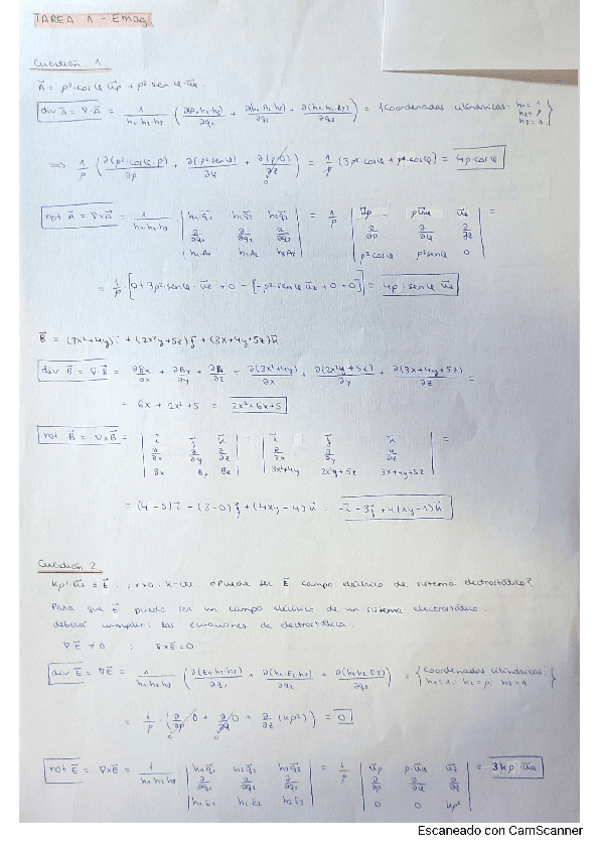 TAREA 1 - Emag
Cuestión 1.
A⃗ = ρ²·cosφ u⃗ρ + ρ² senφ·u⃗z
div A⃗ = ∇·A⃗ = 1/(h₁·h₂·h₃) (∂(A₁h₂h₃)/∂q₁ + ∂(h₁A₂h₃)/∂q₂ + ∂(h₁h₂A₃)/∂q₃) = {Coordenadas cilíndricas: h₁=1 h₂=ρ h₃=1}
⟹ 1/ρ (∂(ρ²·cosφ·ρ)/∂ρ + ∂(ρ² senφ)/∂φ + ∂(ρ·0)/∂z) = 1/ρ (3ρ² cosφ + ρ² cosφ) = 4ρ cosφ
rot A⃗ = ∇×A⃗ = 1/(h₁·h₂·h₃) · | h₁q⃗₁ h₂q⃗₂ h₃q⃗₃ | = 1/ρ · | u⃗ρ ρu⃗φ u⃗z | =
∂/∂q₁ ∂/∂q₂ ∂/∂q₃ ∂/∂ρ ∂/∂φ ∂/∂z
h₁A₁ h₂A₂ h₃A₃ ρ²cosφ ρ³senφ 0
= 1/ρ [0 + 3ρ²·senφ·u⃗z + 0 - [-ρ² senφ u⃗z + 0 + 0]] = 4ρ·senφ u⃗z
B⃗ = (3x²+4y) i⃗ + (2x²y+5z) j⃗ + (3x+4y+5z) k⃗
div B⃗ = ∇·B⃗ = ∂Bx/∂x + ∂By/∂y + ∂Bz/∂z = ∂(3x²+4y)/∂x + ∂(2x²y+5z)/∂y + ∂(3x+4y+5z)/∂z =
= 6x + 2x² + 5 = 2x²+6x+5
rot B⃗ = ∇×B⃗ = | i⃗ j⃗ k⃗ | = | i⃗ j⃗ k⃗ | =
∂/∂x ∂/∂y ∂/∂z ∂/∂x ∂/∂y ∂/∂z
Bx By Bz 3x²+4y 2x²y+5z 3x+4y+5z
= (4-5) i⃗ - (3-0) j⃗ + (4xy-4) k⃗ = -i⃗ - 3j⃗ + 4(xy-1) k⃗
Cuestión 2
¿Puede ser E⃗ campo eléctrico de sistema electrostático?
Para que E⃗ pueda ser un campo eléctrico de un sistema electrostático,
deberá cumplir: las ecuaciones de electrostática.
∇E⃗ ≠ 0 ; ∇×E⃗ = 0
div E⃗ = ∇E⃗ = 1/(h₁h₂h₃) (∂(E₁h₂h₃)/∂q₁ + ∂(h₁E₂h₃)/∂q₂ + ∂(h₁h₂E₃)/∂q₃) = {Coordenadas cilíndricas. h₁=1, h₂=ρ, h₃=1}
= 1/ρ (∂/∂ρ 0 + ∂/∂φ 0 + ∂/∂z (kρ²)) = 0
rot E⃗ = ∇×E⃗ = 1/(h₁h₂h₃) | h₁q⃗₁ h₂q⃗₂ h₃q⃗₃ | = 1/ρ | u⃗ρ ρu⃗φ u⃗z | = 3kρ·u⃗φ
∂/∂q₁ ∂/∂q₂ ∂/∂q₃ ∂/∂ρ ∂/∂φ ∂/∂z
h₁E₁ h₂E₂ h₃E₃ 0 0 kρ²
Escaneado con CamScanner